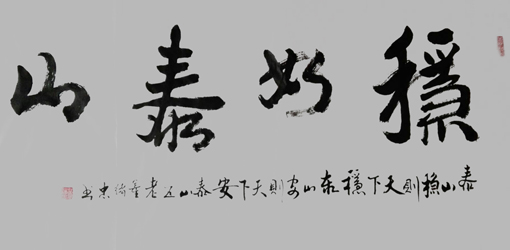 穩如泰山
泰山穩則天下穩泰山安則天下安泰山老忠书